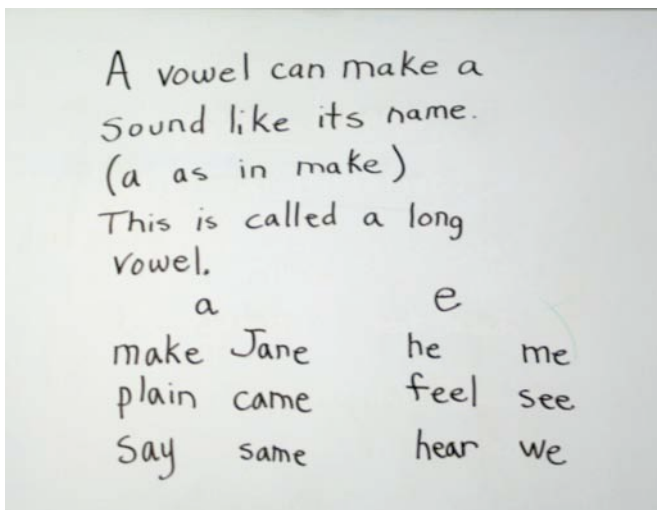 A vowel can make a
sound like its name.
(a as in make)
This is called a long
vowel.
a e
make Jane he me
plain came feel see
say same hear we